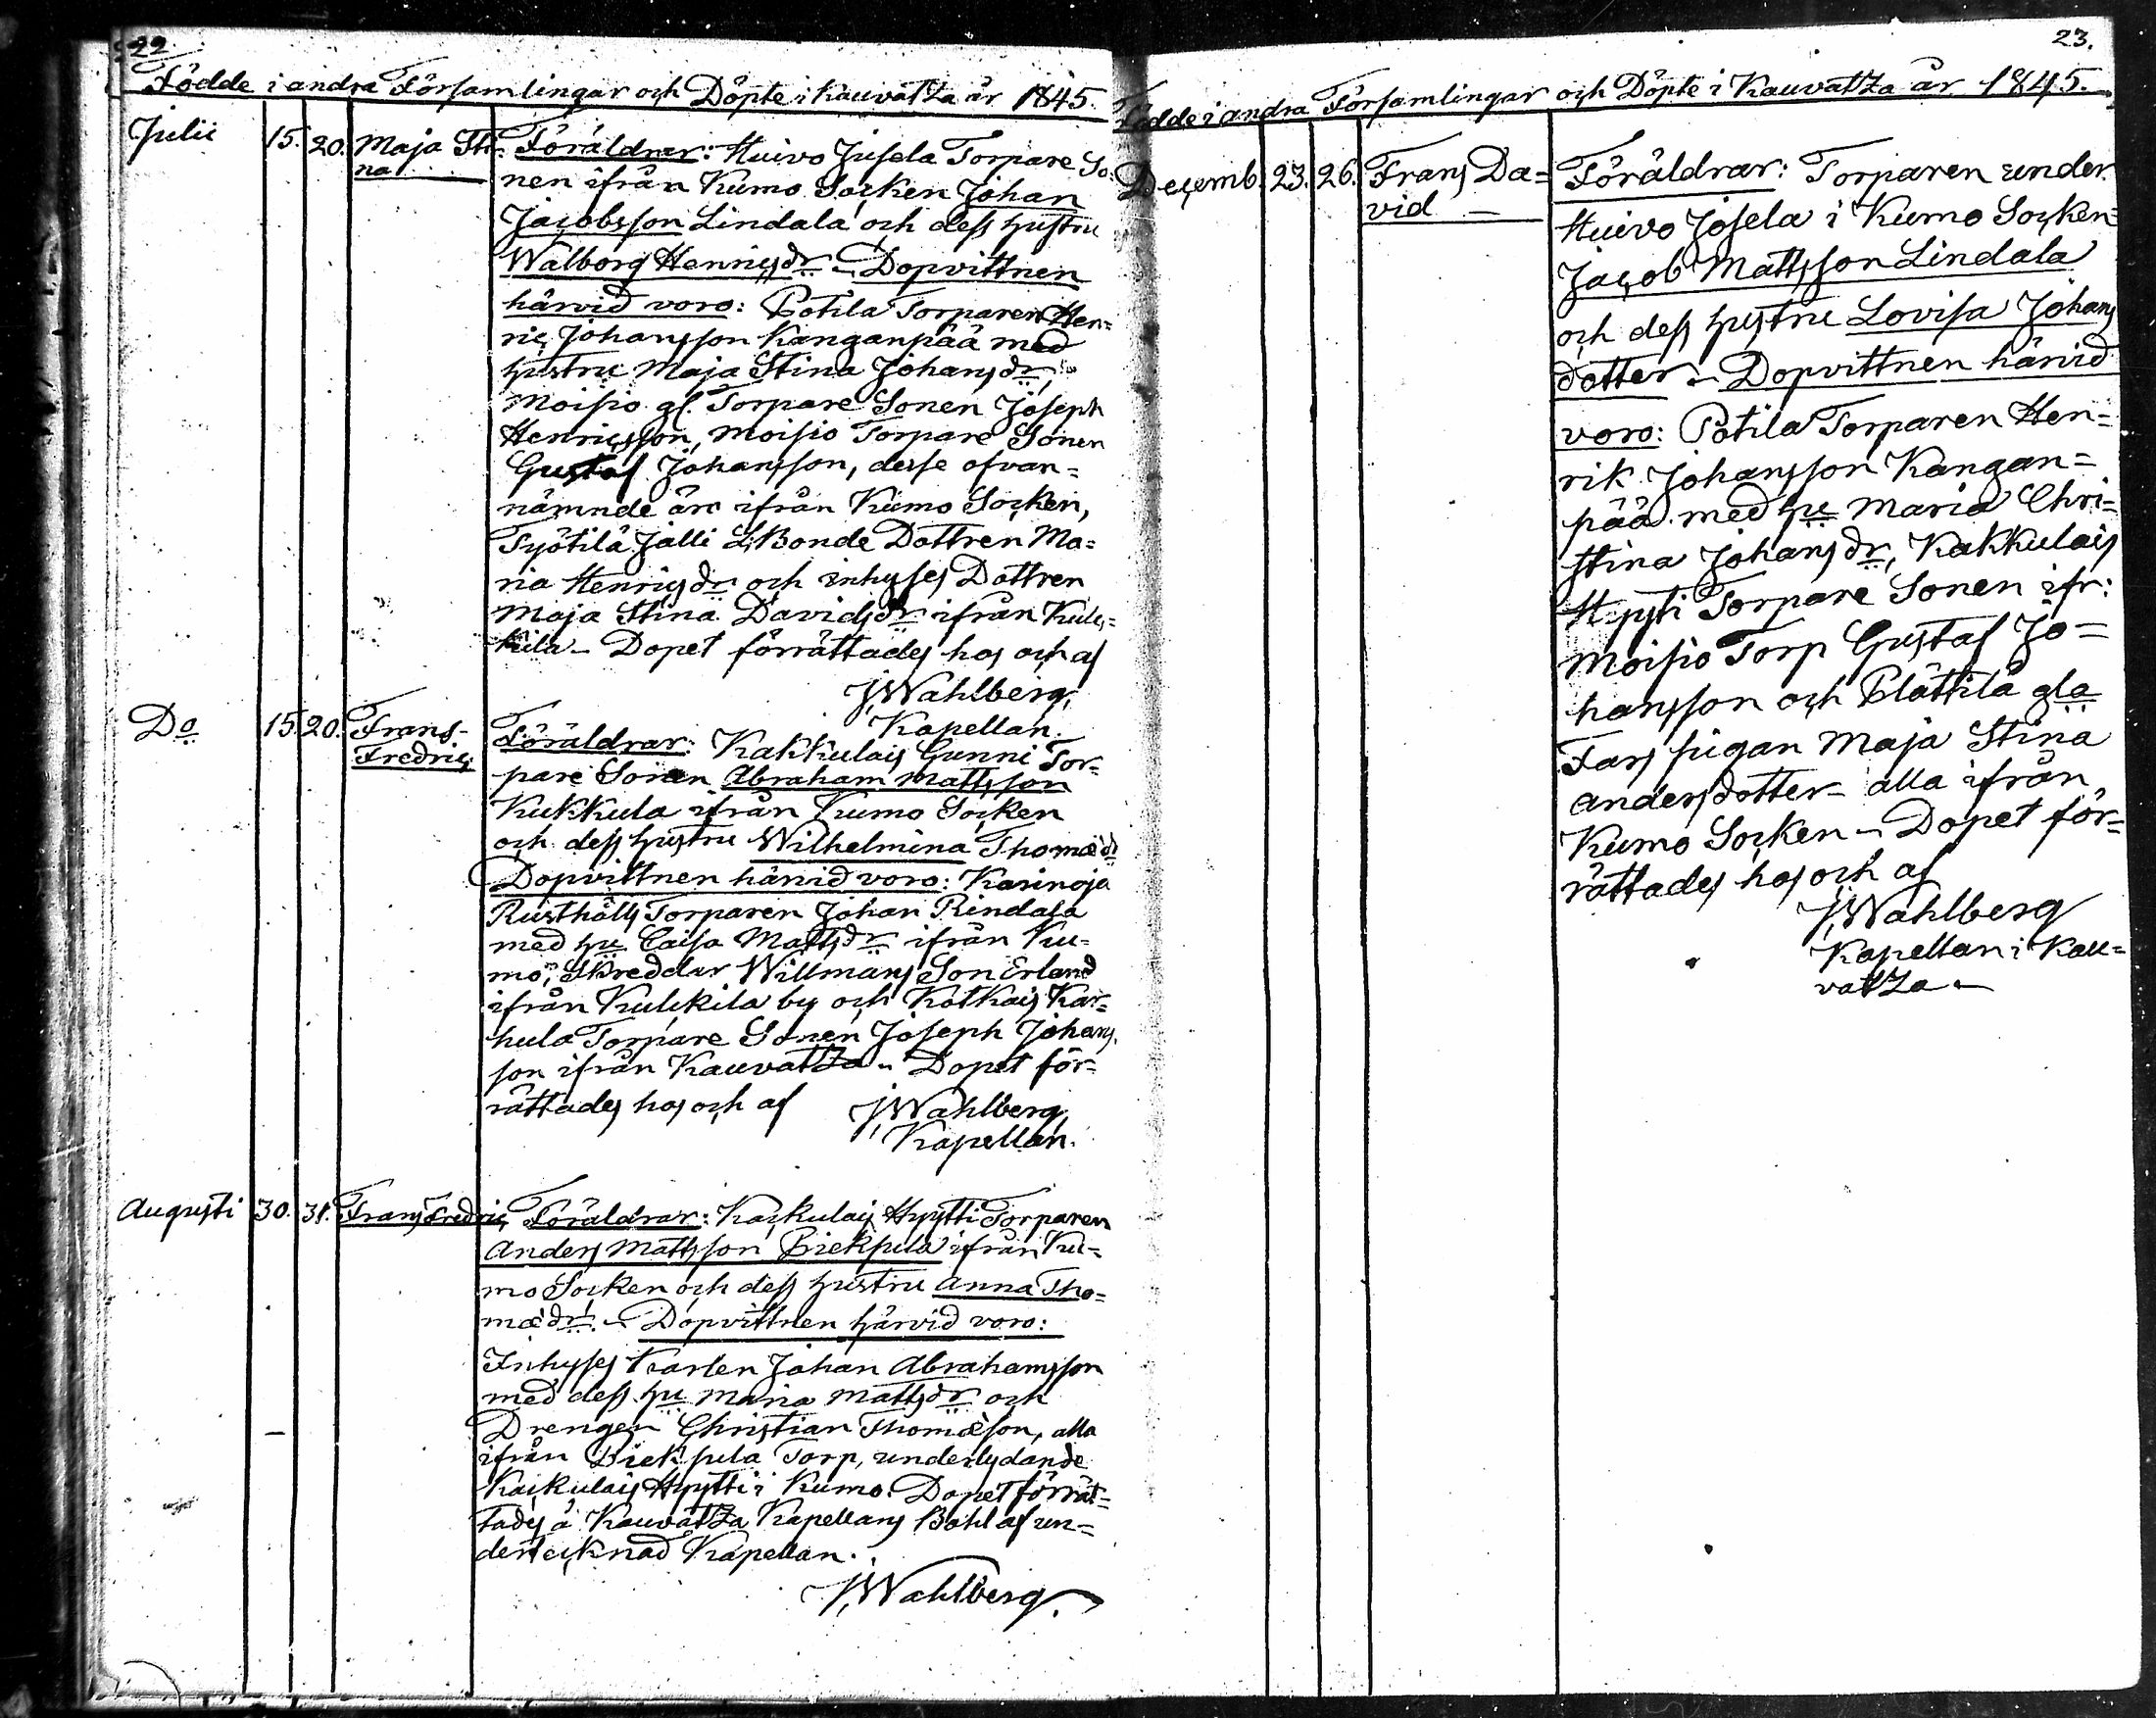 22
Födde i andra Församlingar och Döpte i Kauvatza år 1845.
Julii 15. 20. Maja Sti-
na
Föräldrar: Huivo Jusela Torpare So-
nen ifrån Kumo Socken Johan
Jacobsson Lindala och dess hustru
Walborg Henricsdr Dopvittnen
härvid voro: Potila Torparen Hen=
ric Johansson Kanganpää med
hustru Maja Stina Johansdr,
Moisio gl. Torpare Sonen Joseph
Henricsson, Moisio Torpare Sonen
Gustaf Johansson, desse ofvan=
nämnde äro ifrån Kumo Socken,
Työtilä Jalli Bonde Dottren Ma=
ria Henricsdr och inhyses Dottren
Maja Stina Davidsdr ifrån Kulc=
kila - Dopet förrättades hos och af
J. Wahlberg,
Kapellan.
Do 15. 20. Frans-
Fredric
Föräldrar: Kakkulais Gunni Tor-
pare Sonen Abraham Mattsson
Kukkula ifrån Kumo Socken
och dess hustru Wilhelmina Thomædr
Dopvittnen härvid voro: Karinoja
Rusthålls Torparen Johan Rindala
med hu Caisa Mattsdr ifrån Ku-
mo, Skreddar Willmans Son Erland
ifrån Kulckila by och Kotkais Kar=
hula Torpare Sonen Joseph Johans-
son ifrån Kauvatza - Dopet för-
rättades hos och af J. Wahlberg,
Kapellan.
Augusti 30. 31. Frans Fredric
Föräldrar: Kackulais Hyytti Torparen
Anders Mattsson Pickpula ifrån Ku-
mo Socken och dess hustru Anna Tho=
mædr. - Dopvittnen härvid voro:
Inhyses Karlen Johan Abrahamsson
med dess hu Maria Mattsdr och
Drengen Christian Thomæson, alla
ifrån Pickpula Torp, underlydande
Kackulais Hyytti i Kumo. Dopet förrät=
tades å Kauvatza Kapellans Bohl af un=
dertecknad Kapellan.
J. Wahlberg.
23.
Födde i andra Församlingar och Döpte i Kauvatza år 1845.
Decemb. 23. 26. Frans Da=
vid
Föräldrar: Torparen under
Huivo Josela i Kumo Socken=
Jacob Mattsson Lindala
och dess hustru Lovisa Johans
dotter - Dopvittnen härvid
voro: Potila Torparen Hen=
rik Johansson Kangan=
pää med hu Maria Chri=
stina Johansdr, Kakkulais
Hyyti Torpare Sonen ifr:
Moisio Torp Gustaf Jo=
hansson och Plättilä gla
Fars pigan Maja Stina
Andersdotter - alla ifrån
Kumo Socken - Dopet för=
rättades hos och af
J. Wahlberg
Kapellan i Kau=
vatza -